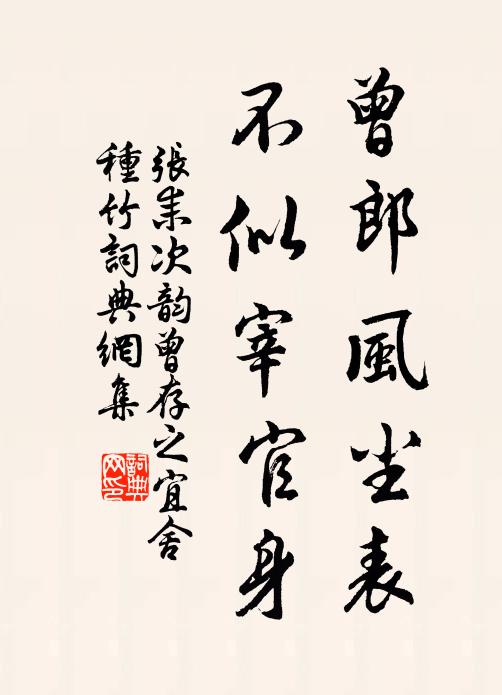 曾郎風尘表
不似宰官身
張耒次韵曾存之宜舍
種竹詞典網集
詞典
网印